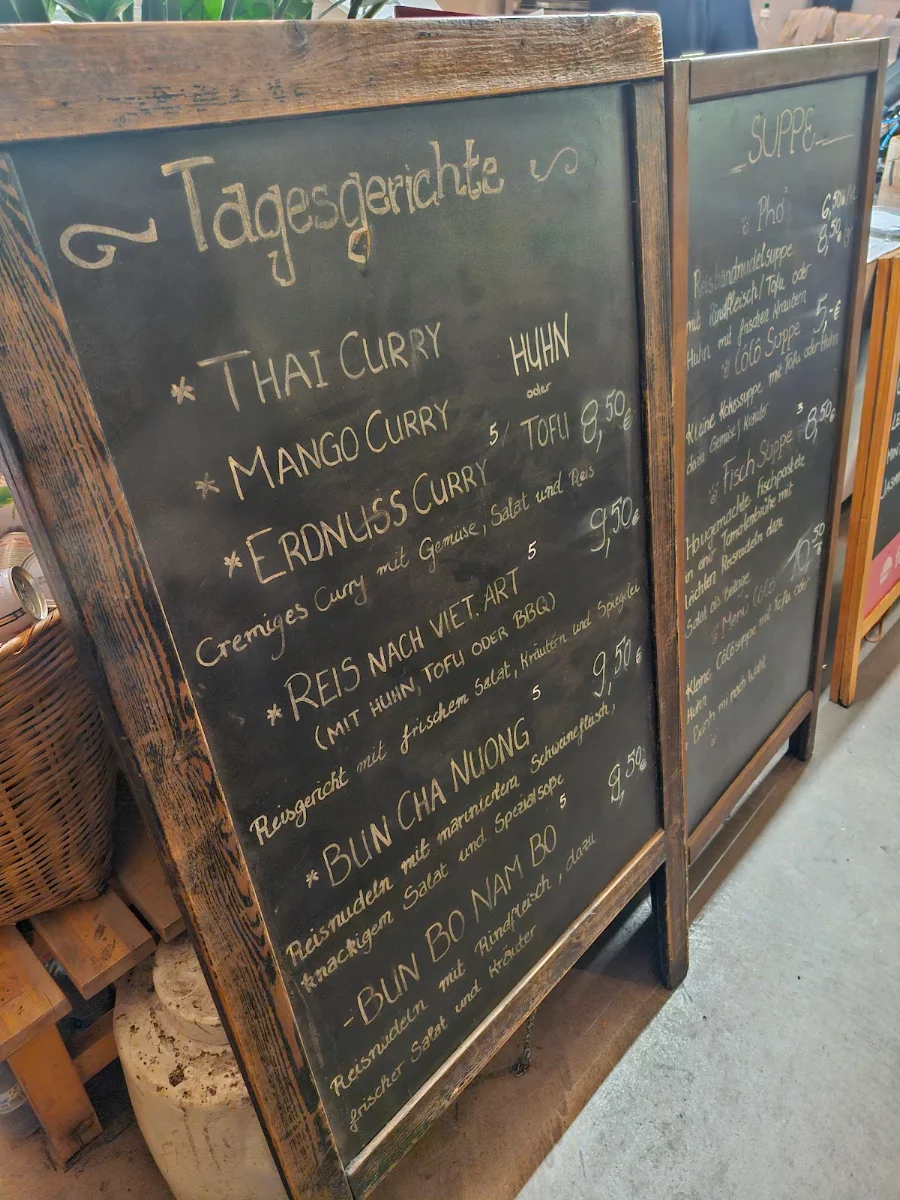 Tagesgerichte
* THAI CURRY HUHN
oder
* MANGO CURRY 5/ TOFU 8,50€
* ERDNUSS CURRY
Cremiges Curry mit Gemüse, Salat und Reis
* REIS NACH VIET. ART 5 9,50€
(MIT HUHN, TOFU ODER BBQ)
Reisgericht mit frischem Salat, Kräutern und Spiegelei
* BUN CHA NUONG 5 9,50€
Reisnudeln mit mariniertem Schweinefleisch,
knackigem Salat und Spezialsoße
- BUN BO NAM BO 5 9,50€
Reisnudeln mit Rindfleisch, dazu
frischer Salat und Kräuter
SUPPE
Pho 6,50
8,50
Reisbandnudelsuppe
mit Rindfleisch/Tofu oder
Huhn mit frischen Kräutern
Coco Suppe 5,-€
Kleine Kokossuppe mit Tofu oder Huhn
dazu Gemüse/Kräuter
Fisch Suppe 3 8,50€
Hausgemachte Fischpastete
und Tomatenbrühe mit
leichten Reisnudeln dazu
Salat als Beilage
Menü Coco 10,50
Kleine Cocosuppe mit Tofu oder
Huhn